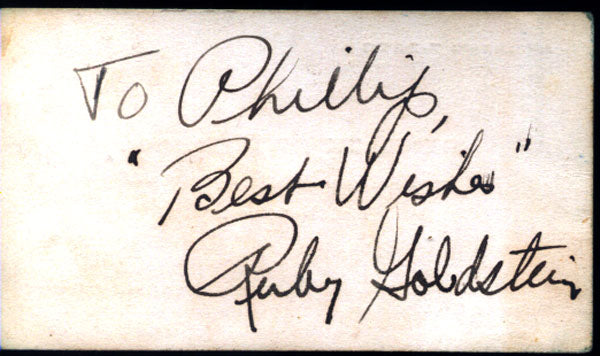 To Phillip,
"Best Wishes"
Ruby Goldstein